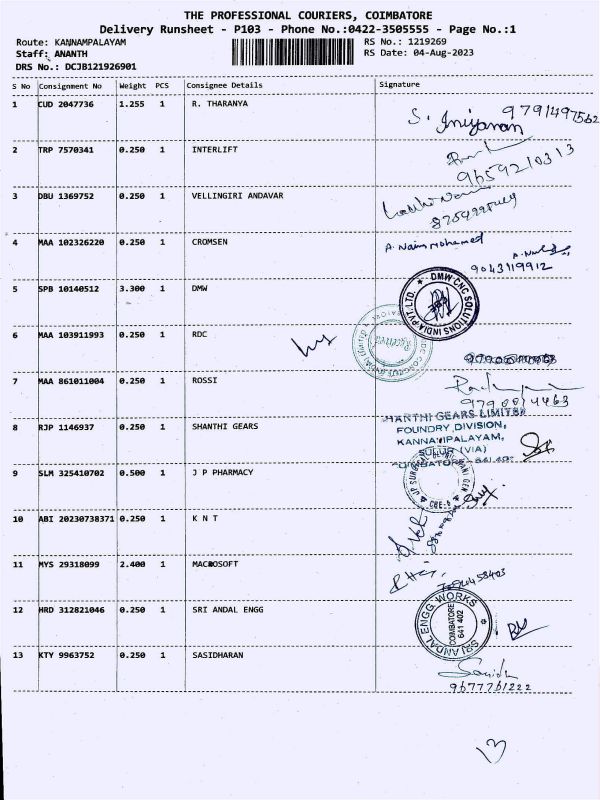 THE PROFESSIONAL COURIERS, COIMBATORE
Delivery Runsheet - P103 - Phone No.:0422-3505555 - Page No.:1
Route: KANNAMPALAYAM
RS No.: 1219269
Staff: ANANTH
RS Date: 04-Aug-2023
DRS No.: DCJB121926901
S No Consignment No Weight PCS Consignee Details Signature
1 CUD 2047736 1.255 1 R. THARANYA
S. Iniyanan 9791497562
2 TRP 7570341 0.250 1 INTERLIFT
9659210313
3 DBU 1369752 0.250 1 VELLINGIRI ANDAVAR
4 MAA 102326220 0.250 1 CROMSEN
A. Naina Mohamed
9043119912
5 SPB 10140512 3.300 1 DMW
DMW CNC SOLUTIONS INDIA PVT. LTD.
6 MAA 103911993 0.250 1 RDC
RDC CONCRETE (INDIA) LIMITED
Received
7 MAA 861011004 0.250 1 ROSSI
9790014463
8 RJP 1146937 0.250 1 SHANTHI GEARS
SHANTHI GEARS LIMITED
FOUNDRY DIVISION,
KANNAMPALAYAM,
SULUR (VIA)
COIMBATORE
9 SLM 325410702 0.500 1 J P PHARMACY
JP SURGICAL
CBE-5
10 ABI 20230738371 0.250 1 K N T
11 MYS 29318099 2.400 1 MACROSOFT
12 HRD 312821046 0.250 1 SRI ANDAL ENGG
SRI ANDAL ENGG WORKS
COIMBATORE
641 402
13 KTY 9963752 0.250 1 SASIDHARAN
Sasidh
9677761222